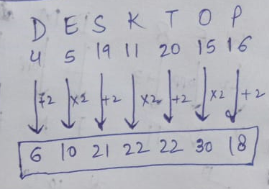 D E S K T O P
4 5 19 11 20 15 16
+2 ×2 +2 ×2 +2 ×2 +2
6 10 21 22 22 30 18